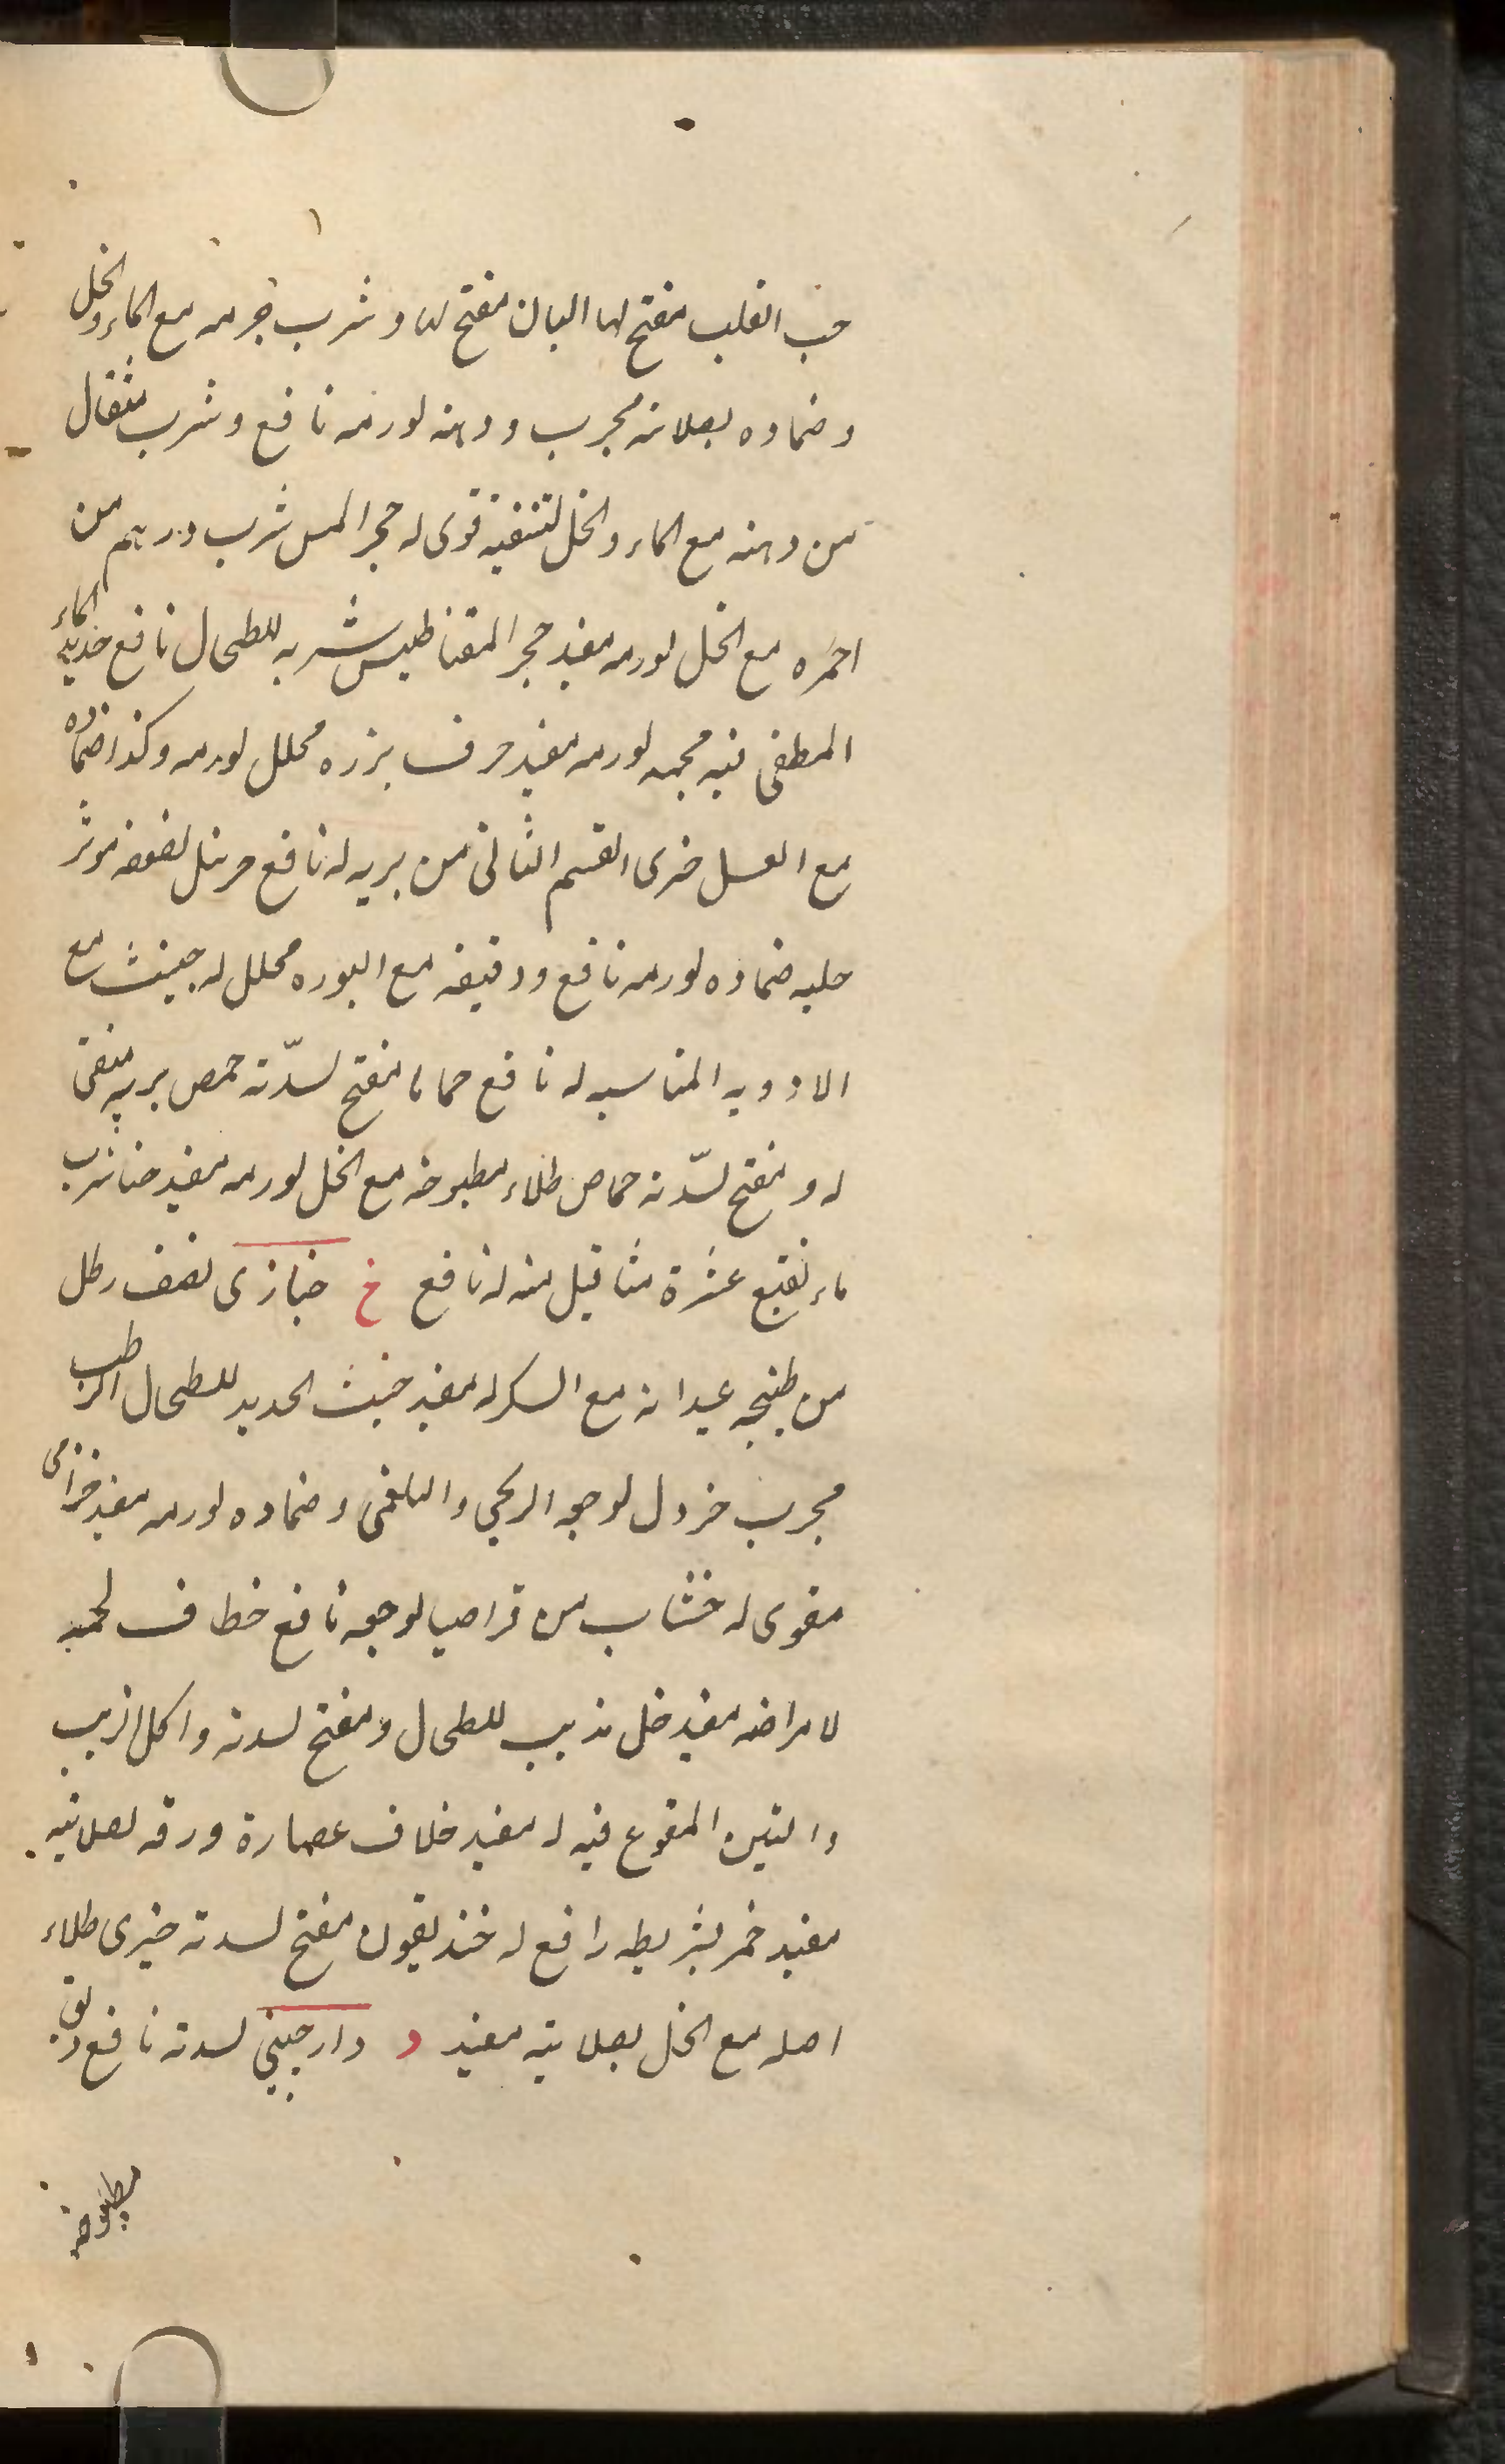 حب القلب مفتح لها البان مفتح لها و شرب جرمه مع الماء والخل
وضماده لصلابته مجرب ودهنه لورمه نافع وشرب مثقال
من دهنه مع الماء والخل لتنقيته قوى له حجر المس شرب درهم من
احمره مع الخل لورمه مفيد حجر المقناطيس شربه للطحال نافع حديد الماء
المطفى فيه لورمه مفيد حرف بزره محلل لورمه وكذا ضماده
مع العسل القسم الثانى من بريه له نافع حرمل لضعفه موثر
حلبه ضماده لورمه نافع ودقيقه مع البوره محلل له مع
الادويه المناسبه له نافع حماما مفتح لسدّته حمص بريه منقى
له و مفتح لسدّته حماض طلاء مطبوخه مع الخل لورمه مفيد حنا شرب
ماء نقيع عشرة مثاقيل منه له نافع خ خبازى نصف رطل
من طبيخ عيدانه مع السكر له مفيد خبث الحديد للطحال الرطب
مجرب خردل لوجعه الريحى والبلغمى وضماده لورمه مفيد خزامى
مقوى له خشاب من قراصيا لوجعه نافع خطاف لحمه
لامراضه مفيد خل مذيب للطحال ومفتح لسدته واكل الزبيب
والتين المنقوع فيه له مفيد خلاف عصارة ورقه لصلابته
مفيد خمر بشرطه رافع له خنديقون مفتح لسدته خيرى طلاء
اصله مع الخل لصلابته مفيد د دارچينى لسدته نافع دلق
مطبوخه